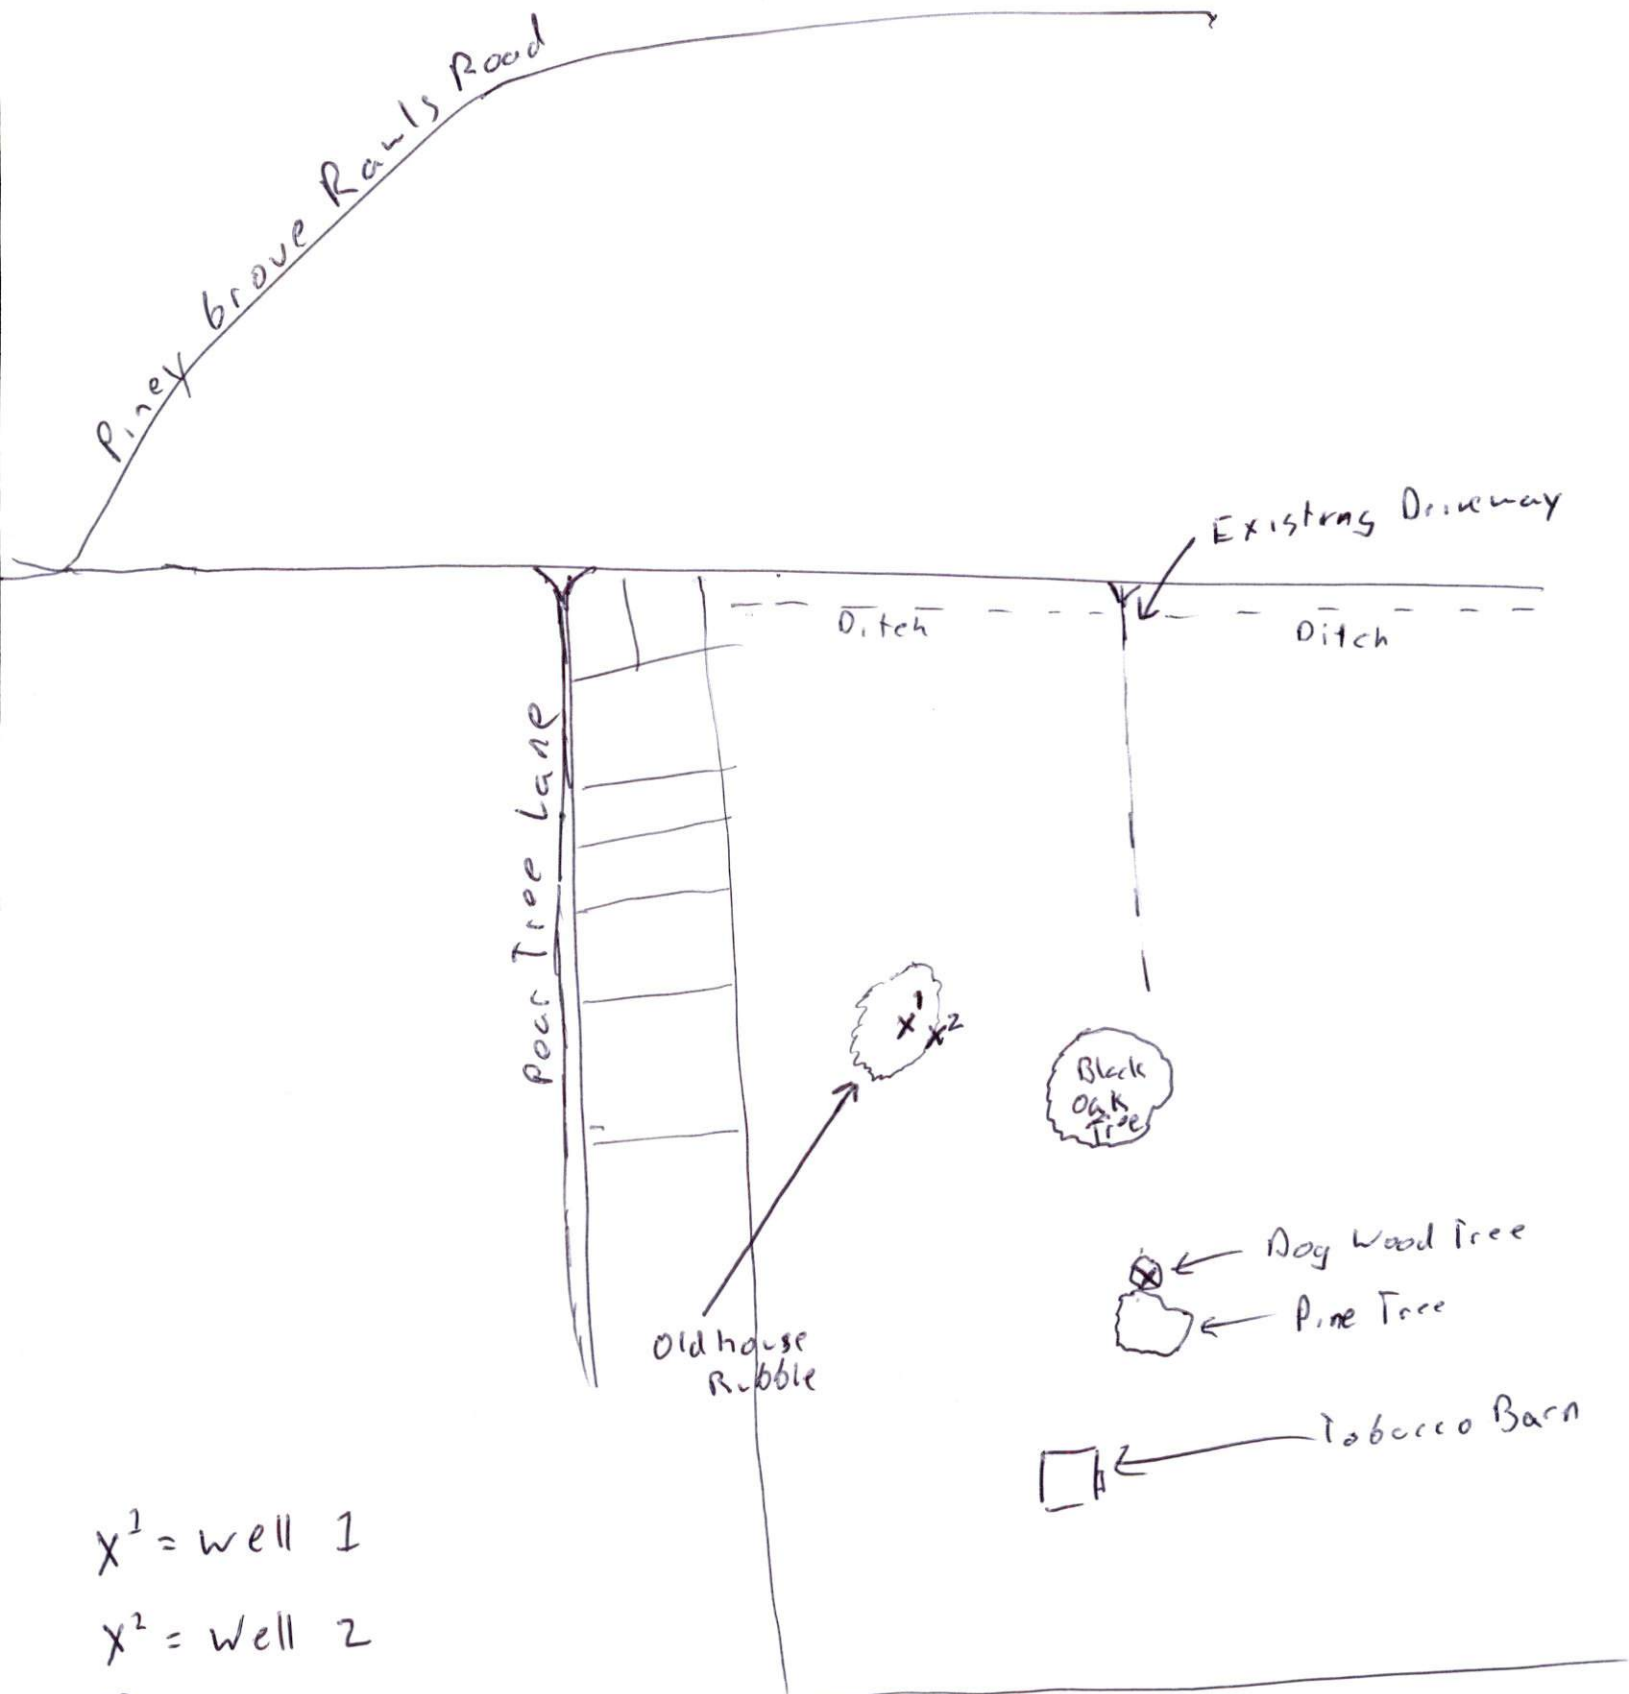 Piney Grove Rawls Road
Existing Driveway
Ditch
Ditch
Pear Tree Lane
X1
X2
Black
Oak
Tree
Dog Wood Tree
Pine Tree
Old house
Rubble
Tobacco Barn
X1 = well 1
X2 = Well 2